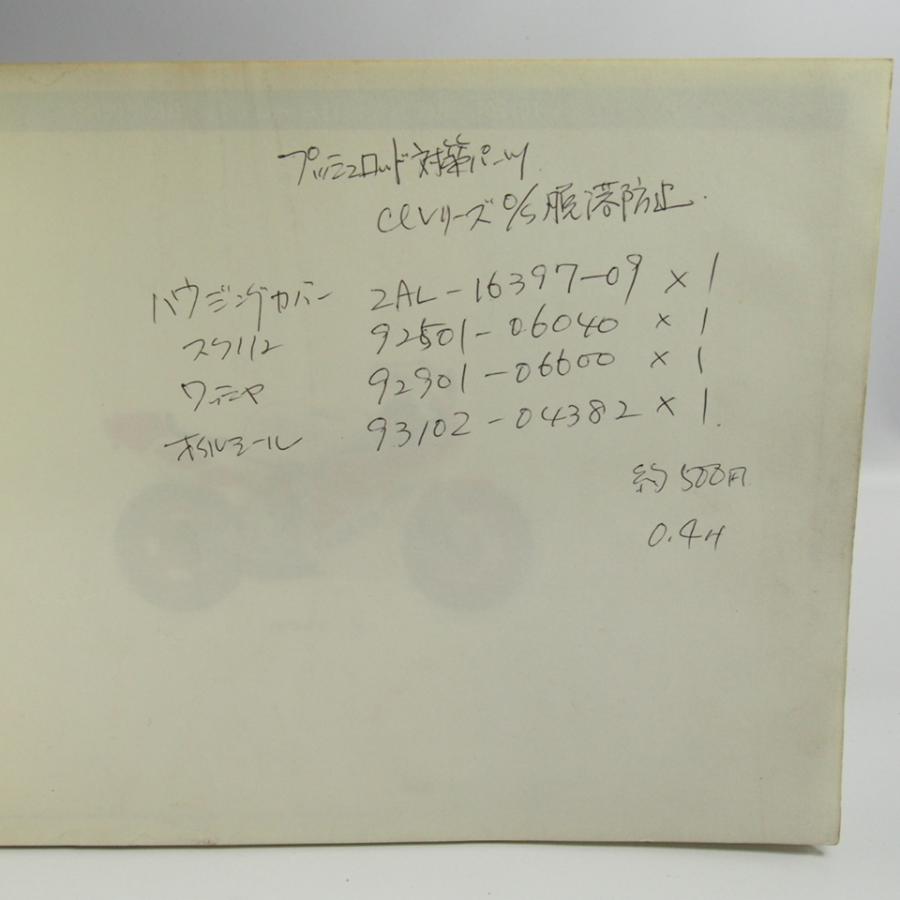 プッシュロッド対策パーツ
CLVリーズ O/S脱落防止.
ハウジングカバー 2AL-16397-09 × 1
スクリュ 92501-06040 × 1
ワッシャ 92901-06600 × 1
オイルシール 93102-04382 × 1.
約500円
0.4H